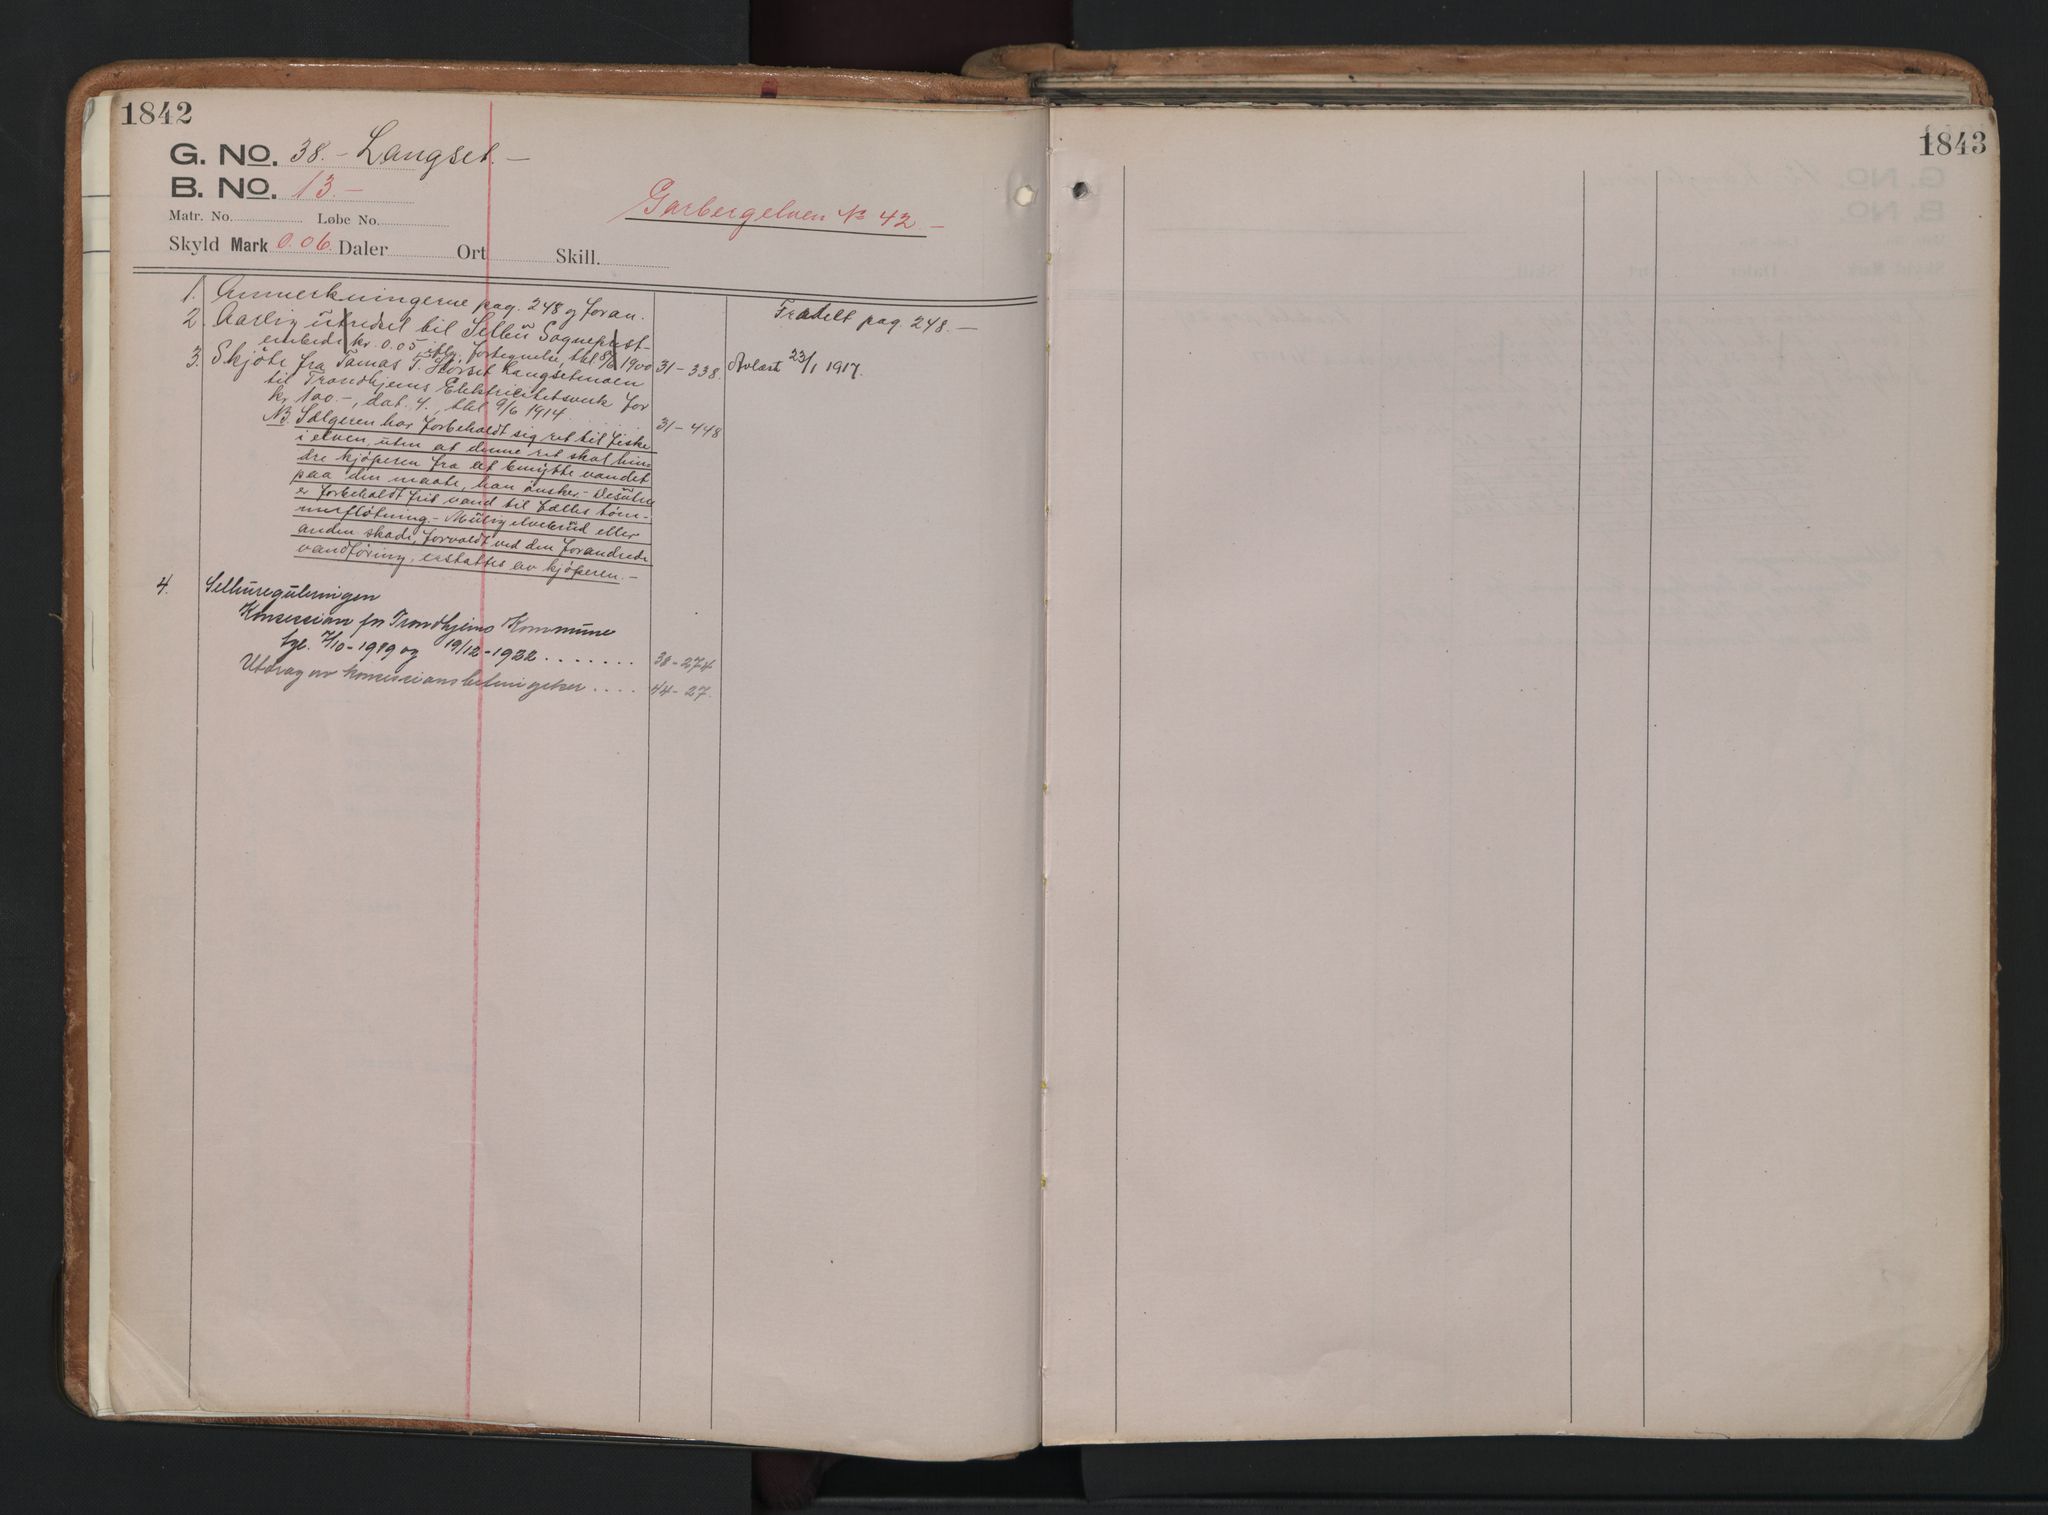 1842
G. No. 38. – Langset. –
B. No. 13. –
Matr. No. Løbe No.
Garbergelven № 42. –
Skyld Mark 0.06. Daler Ort Skill.
1. Anmerkningerne pag. 248 og foran.
Fradelt pag. 248. –
2. Aarlig utredsel til Selbu Sogneprest-
embede kr. 0.05 ifølge fortegnelse, thl 8/6 1900 31–338. Avløst 23/1 1917.
3. Skjøte fra Tomas T. Flørset Langsetmoen
til Trondhjems Elektricitetsverk for
kr. 100.–, dat. 4., thl 9/6 1914 . . . . . 31–448
NB. Sælgeren har forbeholdt sig ret til fiske
i elven, uten at denne ret skal hin-
dre kjøperen fra at benytte vandet
paa den maate, han ønsker. – Desuten
er forbeholdt frit vand til fælles tøm-
merfløtning. – Mulig elvebrud eller
anden skade, forvoldt ved den forandrede
vandføring, erstattes av kjøperen. –
4. Selbureguleringen
Konsession for Trondhjems Kommune
tgl. 7/10–1919 og 19/12–1922 . . . . . . . 38–274
Utdrag av konsessionsbetingelser . . . . 44–27.
1843